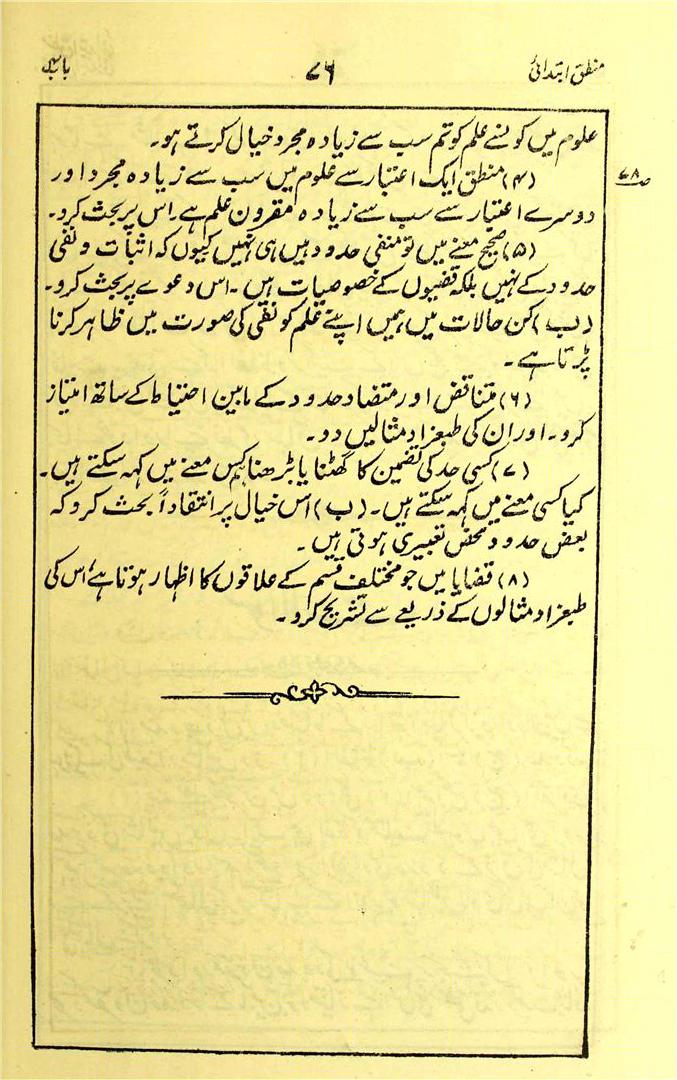 منطق ابتدائی ۷۶ باب
علوم میں کونسے علم کو تم سب سے زیادہ مجرد خیال کرتے ہو۔
(۴) منطق ایک اعتبار سے علوم میں سب سے زیادہ مجرد اور
ص۷۸
دوسرے اعتبار سے سب سے زیادہ مقرون علم ہے۔ اس پر بحث کرو۔
(۵) صحیح معنے میں تو منفی حدود ہیں ہی نہیں کیوں کہ اثبات و نفی
حدود کے نہیں بلکہ قضیوں کے خصوصیات ہیں۔ اس دعوے پر بحث کرو۔
(ب) کن حالات میں ہمیں اپنے علم کو نفی کی صورت میں ظاہر کرنا
پڑتا ہے۔
(۶) متناقض اور متضاد حدود کے مابین احتیاط کے ساتھ امتیاز
کرو۔ اور ان کی طبعزاد مثالیں دو۔
(۷) کسی حد کی تضمین کا گھٹنا یا بڑھنا ہم کس معنے میں کہہ سکتے ہیں۔
کیا کسی معنے میں کہہ سکتے ہیں۔ (ب) اس خیال پر انتقاداً بحث کرو کہ
بعض حدود محض تعبیری ہوتی ہیں۔
(۸) قضایا میں جو مختلف قسم کے علاقوں کا اظہار ہوتا ہے، اس کی
طبعزاد مثالوں کے ذریعے سے تشریح کرو۔